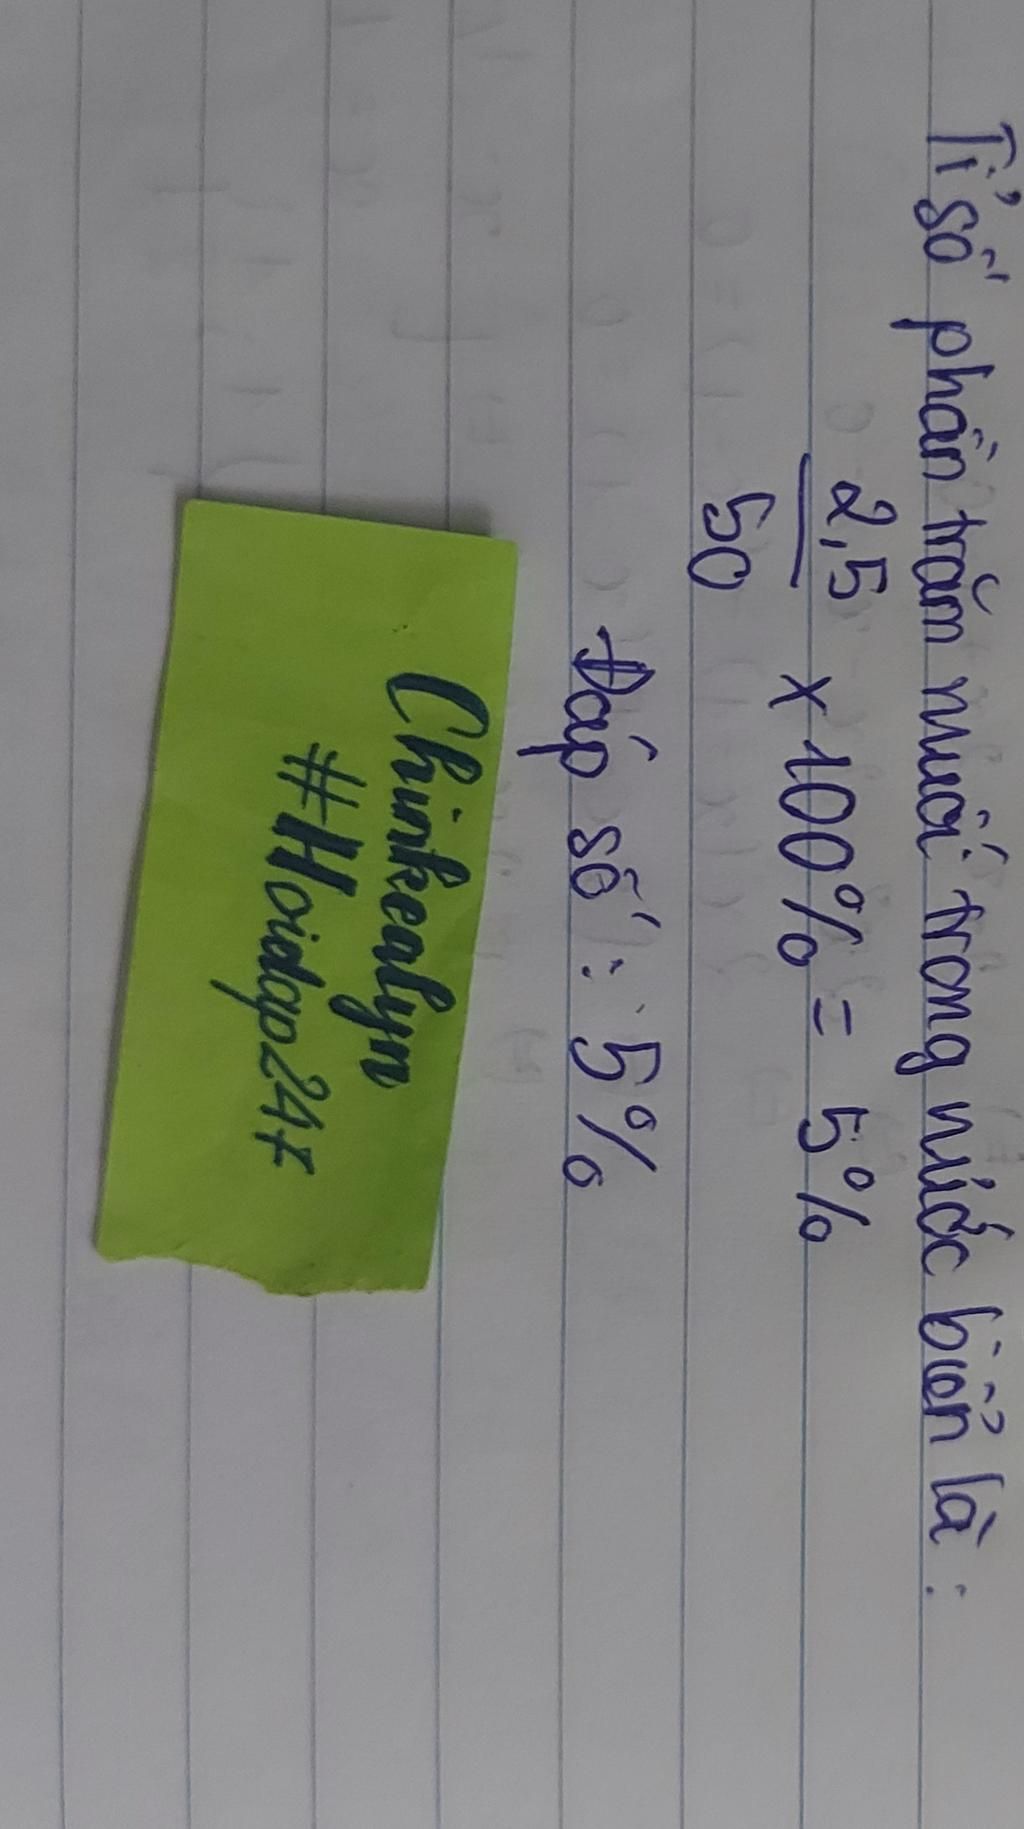 Tỉ số phần trăm muối trong nước biển là :
2,5
/50 x 100% = 5%
Đáp số : 5%
Chinkealyn
#Hoidap247